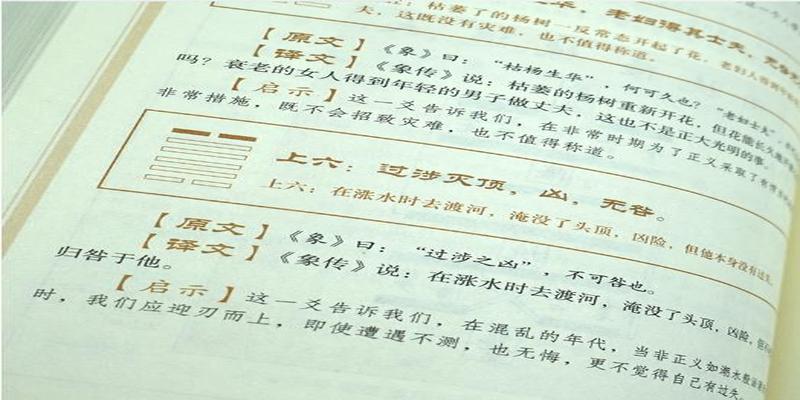 老妇得其士夫，
枯萎了的杨树一反常态开起了花，老妇人
夫，这既没有灾难，也不值得称道。
【原文】《象》曰：“枯杨生华”，何可久也？“老妇士夫”，
【译文】《象传》说：枯萎的杨树重新开花，但花能长久
吗？衰老的女人得到年轻的男子做丈夫，这也不是正大光明的事。
【启示】这一爻告诉我们，在非常时期为了正义采取了有
非常措施，既不会招致灾难，也不值得称道。
上六：过涉灭顶，凶，无咎。
上六：在涨水时去渡河，淹没了头顶，凶险，但他本身没有过失。
【原文】《象》曰：“过涉之凶”，不可咎也。
【译文】《象传》说：在涨水时去渡河，淹没了头顶，凶险，
归咎于他。
【启示】这一爻告诉我们，在混乱的年代，当非正义如潮水般
时，我们应迎刃而上，即使遭遇不测，也无悔，更不觉得自己有过失。